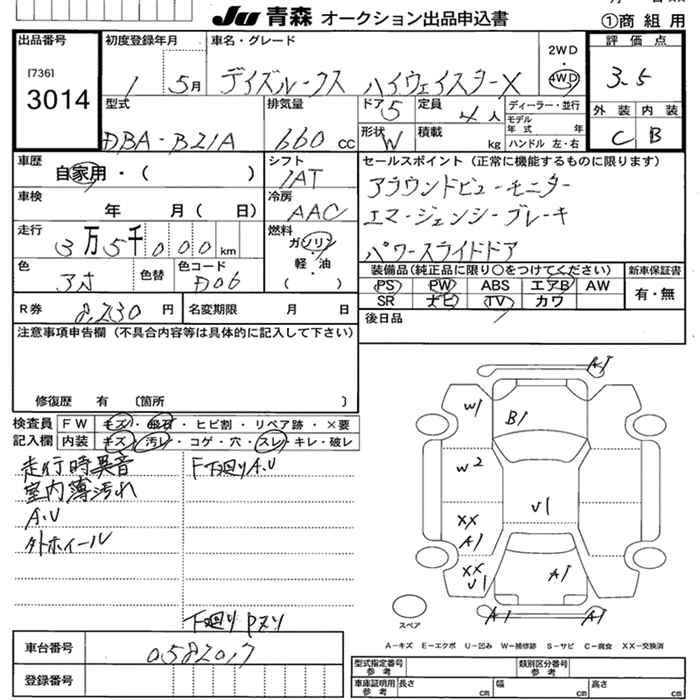 JU 青森 オークション出品申込書
①商組用
出品番号
[736]
3014
初度登録年月
1 5月
車名・グレード
デイズルークス ハイウェイスターX
2WD
・
4WD
評価点
3.5
外装 内装
C B
型式
DBA-B21A
排気量
660 CC
ドア 5
定員 4人
形状 W
積載 kg
ディーラー・並行
モデル年式 年
ハンドル 左・右
車歴
自家用・( )
シフト
IAT
冷房
AAC
セールスポイント(正常に機能するものに限ります)
アラウンドビューモニター
エマージェンシーブレーキ
パワースライドドア
車検
年 月( 日)
走行
3万5千000km
燃料
ガソリン
軽・油
・( )
色
アオ
色替
色コード
D06
装備品(純正品に限り〇をつけてください)
PS PW ABS エアB AW
SR ナビ TV カワ
新車保証書
有・無
R券 8,230円
名変期限 月 日
後日品
注意事項申告欄(不具合内容等は具体的に記入して下さい)
修復歴 有 〔箇所 〕
検査員記入欄
FW キズ・飛石・ヒビ割・リペア跡・×要
内装 キズ・汚レ・コゲ・穴・スレ・キレ・破レ
走行時異音
室内薄汚れ
A.U
外ホイール
F下廻りA.U
下廻りPヌリ
A1
W1
B1
W2
U1
XX
A1
XX
U1
A1
A1
A1
スペア
A-キズ E-エクボ U-凹み W-補修跡 S-サビ C-腐食 XX-交換済
車台番号
0582017
登録番号
型式指定番号 参考
類別区分番号 参考
車庫証明用 参考
長さ cm
幅 cm
高さ cm